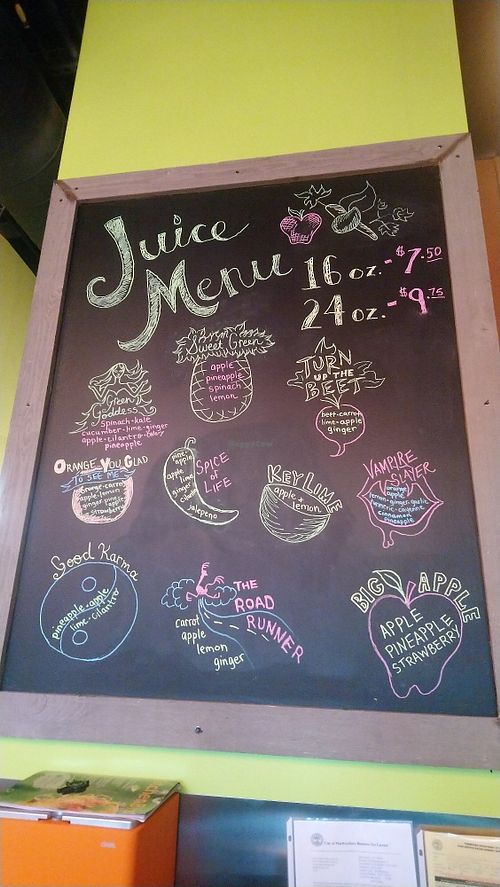 Juice
Menu
16 oz. - $7.50
24 oz. - $9.75
Sweet Green
apple
pineapple
spinach
lemon
Turn
up the
Beet
beet-carrot
lime-apple
ginger
Green
Goddess
spinach-kale
cucumber-lime-ginger
apple-cilantro-celery
pineapple
Orange You Glad
to see me
orange-carrot
apple-lemon
ginger-pineapple
strawberry
Spice
of
Life
pineapple
apple
lime
ginger
jalapeno
Key Lime
apple +
lemon
Vampire
Slayer
orange
apple
lemon-ginger-garlic
turmeric-cayenne
cinnamon
pineapple
Good Karma
pineapple-apple
lime-cilantro
The
Road
Runner
carrot
apple
lemon
ginger
Big Apple
Apple
Pineapple
Strawberry